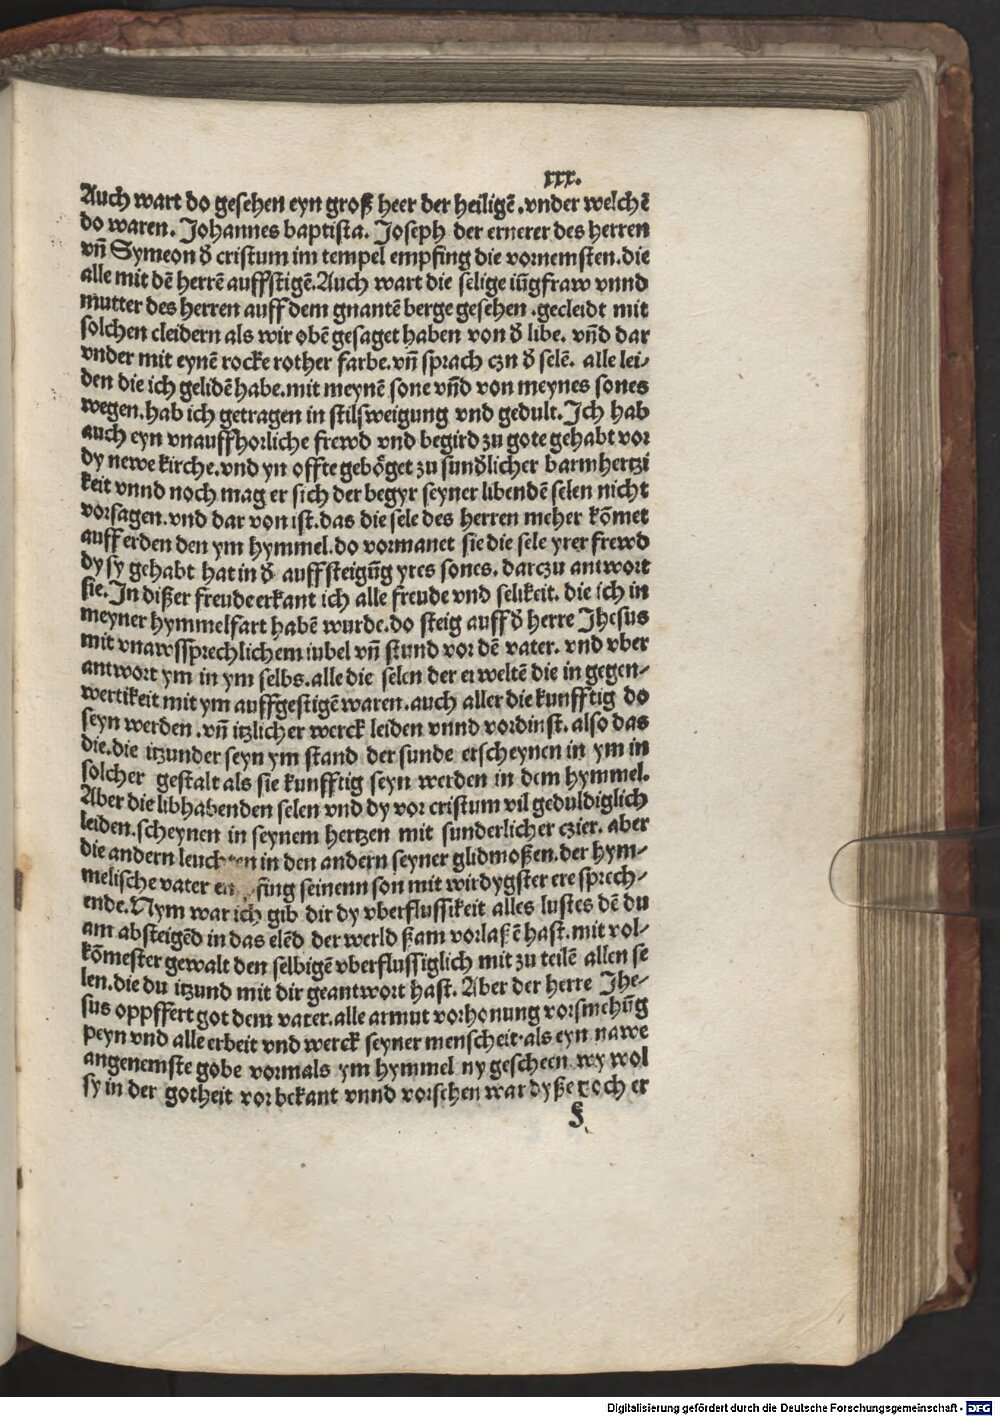 xxx.
Auch wart do gesehen eyn groß heer der heiligē.vnder welchē
do waren. Johannes baptista. Joseph der ernerer des herren
vn̄ Symeon d̕ cristum im tempel empfing die vornemsten.die
alle mit dē herrē auffstigē.Auch wart die selige iūgfraw vnnd
mutter des herren auff dem gnantē berge gesehen .gecleidt mit
solchen cleidern als wir obē gesaget haben von d̕ libe. vn̄d dar
vnder mit eynē rocke rother farbe.vn̄ sprach czu d̕ selē. alle lei-
den die ich gelidē habe.mit meynē sone vn̄d von meynes sones
wegen.hab ich getragen in stilsweigung vnd gedult.Ich hab
auch eyn vnauffhorliche frewd vnd begird zu gote gehabt vor
dy newe kirche.vnd yn offte geböget zu sund̕licher barmhertzi
keit vnnd noch mag er sich der begyr seyner libendē selen nicht
vorsagen.vnd dar von ist.das die sele des herren meher kōmet
auff erden den ym hymmel.do vormanet sie die sele yrer frewd
dy sy gehabt hat in d̕ auffsteigūg yres sones. darczu antwort
sie.In dißer freude erkant ich alle freude vnd selikeit. die ich in
meyner hymmelfart habē wurde.do steig auff d̕ herre Jhesus
mit vnawssprechlichem iubel vn̄ stund vor dē vater. vnd vber
antwort ym in ym selbs.alle die selen der erweltē die in gegen-
wertikeit mit ym auffgestigē waren.auch aller die kunfftig do
seyn werden .vn̄ itzlicher werck leiden vnnd vordinst.also das
die.die itzunder seyn ym stand der sunde erscheynen in ym in
solcher gestalt als sie kunfftig seyn werden in dem hymmel.
Aber die libhabenden selen vnd dy vor cristum vil geduldiglich
leiden.scheynen in seynem hertzen mit sunderlicher czier. aber
die andern in den andern seyner glidmoßen.der hym-
melische vater seinenn son mit wirdygster ere sprech-
ende.Nym war ich gib dir dy vberflussikeit alles lustes dē du
am absteigēd in das elēd der werld ßam vorlaßē hast.mit vol-
kōmester gewalt den selbigē vberflussiglich mit zu teilē allen se
len.die du itzund mit dir geantwort hast. Aber der herre Jhe-
sus oppffert got dem vater.alle armut vorhonung vorsmehūg
peyn vnd alle erbeit vnd werck seyner menscheit.als eyn nawe
angenemste gobe vormals ym hymmel ny gescheen wy wol
sy in der gotheit vorbekant vnnd vorsehen war dyße doch er
Digitalisierung gefördert durch die Deutsche Forschungsgemeinschaft - DFG